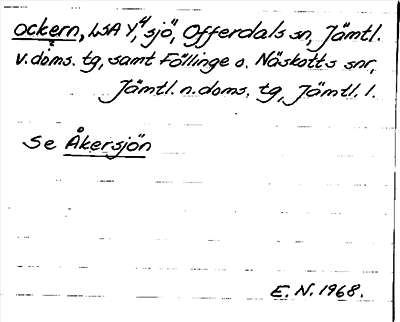 ockern, LSA Y,4 sjö, Offerdals sn, Jämtl.
v. doms. tg, samt Föllinge o. Näskotts snr,
Jämtl. n. doms. tg, Jämtl. l.
Se Åkersjön
E. N. 1968.